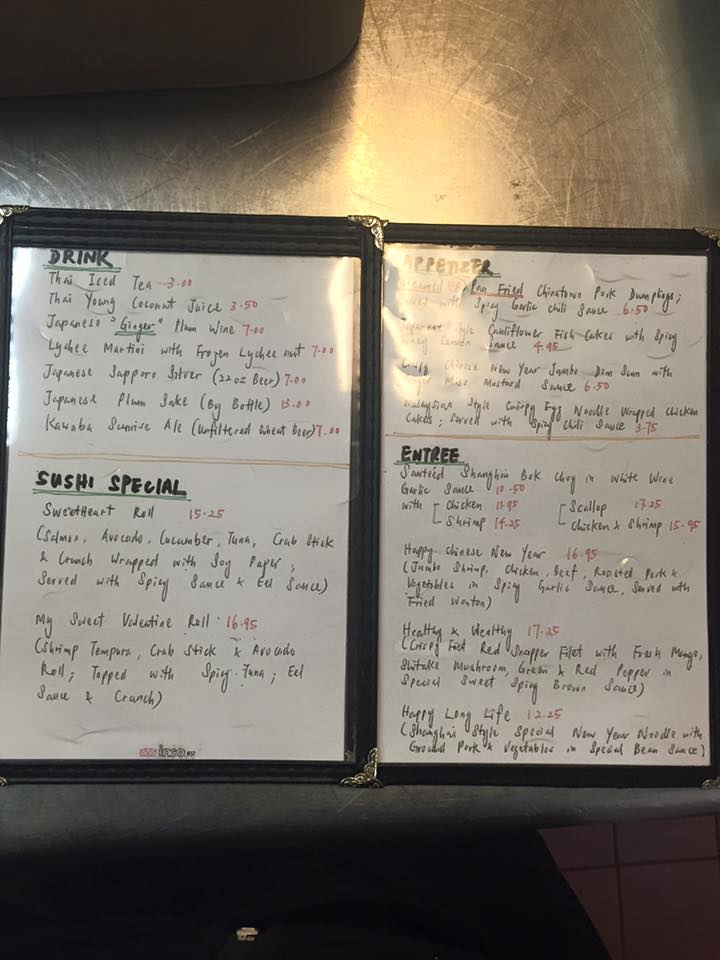 DRINK
Thai Iced Tea 3.00
Thai Young Coconut Juice 3.50
Japanese "Ginger" Plum Wine 7.00
Lychee Martini with Frozen Lychee nut 7.00
Japanese Sapporo Silver (22 oz Beer) 7.00
Japanese Plum Sake (By Bottle) 13.00
Kawaba Sunrise Ale (Unfiltered Wheat Beer) 7.00
SUSHI SPECIAL
SweetHeart Roll 15.25
(Salmon, Avocado, Cucumber, Tuna, Crab Stick
& Crunch Wrapped with Soy Paper;
Served with Spicy Sauce & Eel Sauce)
My Sweet Valentine Roll 16.95
(Shrimp Tempura, Crab Stick & Avocado
Roll; Topped with Spicy Tuna; Eel
Sauce & Crunch)
APPETIZER
Steamed OR Pan Fried Chinatown Pork Dumplings;
Served with Spicy Garlic Chili Sauce 6.50
Japanese Style Cauliflower Fish Cakes with Spicy
Lemon Sauce 4.95
Chinese New Year Jumbo Dim Sum with
Miso Mustard Sauce 6.50
Malaysian Style Crispy Egg Noodle Wrapped Chicken
Cakes; Served with Spicy Chili Sauce 3.75
ENTREE
Sauteed Shanghai Bok Choy in White Wine
Garlic Sauce 10.50
with [ Chicken 11.95 [ Scallop 17.25
Shrimp 14.25 Chicken & Shrimp 15.95
Happy Chinese New Year 16.95
(Jumbo Shrimp, Chicken, Beef, Roasted Pork &
Vegetables in Spicy Garlic Sauce, Served with
Fried Wonton)
Healthy & Wealthy 17.25
(Crispy Fied Red Snapper Filet with Fresh Mango,
Shitake Mushroom, Green & Red Pepper in
Special Sweet Spicy Brown Sauce)
Happy Long Life 12.25
(Shanghai Style Special New Year Noodle with
Ground Pork & Vegetables in Special Bean Sauce)